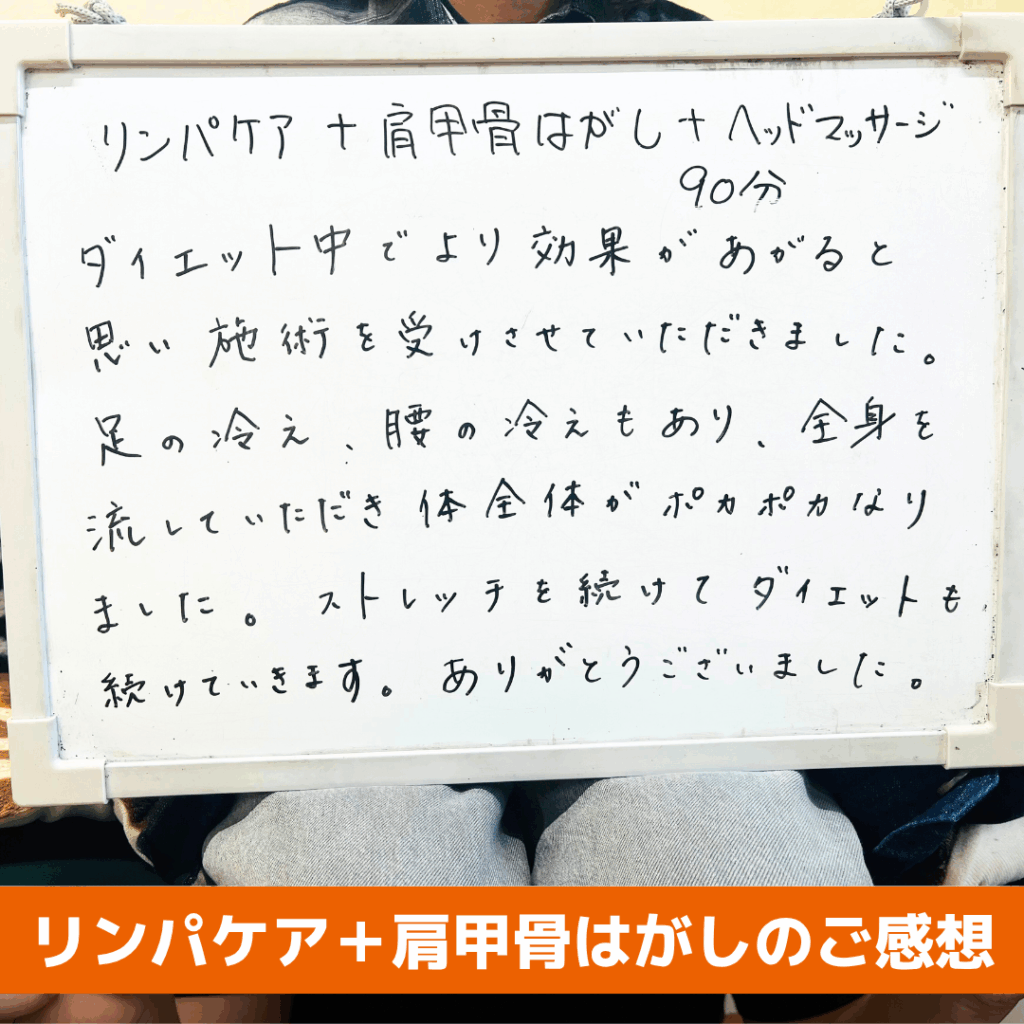 リンパケア+肩甲骨はがし+ヘッドマッサージ
90分
ダイエット中でより効果があがると
思い施術を受けさせていただきました。
足の冷え、腰の冷えもあり、全身を
流していただき体全体がポカポカなり
ました。ストレッチを続けてダイエットも
続けていきます。ありがとうございました。
リンパケア+肩甲骨はがしのご感想